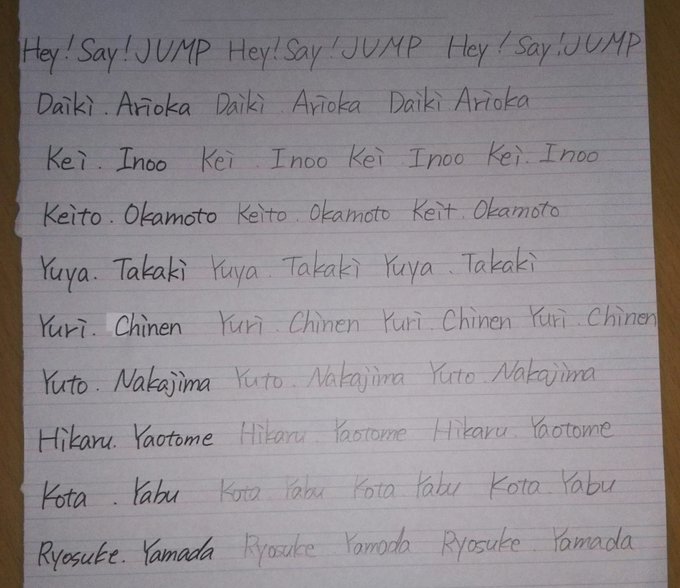 Hey! Say! JUMP Hey! Say! JUMP Hey! Say! JUMP
Daiki . Arioka Daiki . Arioka Daiki Arioka
Kei . Inoo Kei . Inoo Kei . Inoo Kei . Inoo
Keito . Okamoto Keito . Okamoto Keit . Okamoto
Yuya . Takaki Yuya . Takaki Yuya . Takaki
Yuri . Chinen Yuri . Chinen Yuri . Chinen Yuri . Chinen
Yuto . Nakajima Yuto . Nakajima Yuto . Nakajima
Hikaru . Yaotome Hikaru . Yaotome Hikaru . Yaotome
Kota . Yabu Kota . Yabu Kota Yabu Kota . Yabu
Ryosuke . Yamada Ryosuke Yamada Ryosuke . Yamada